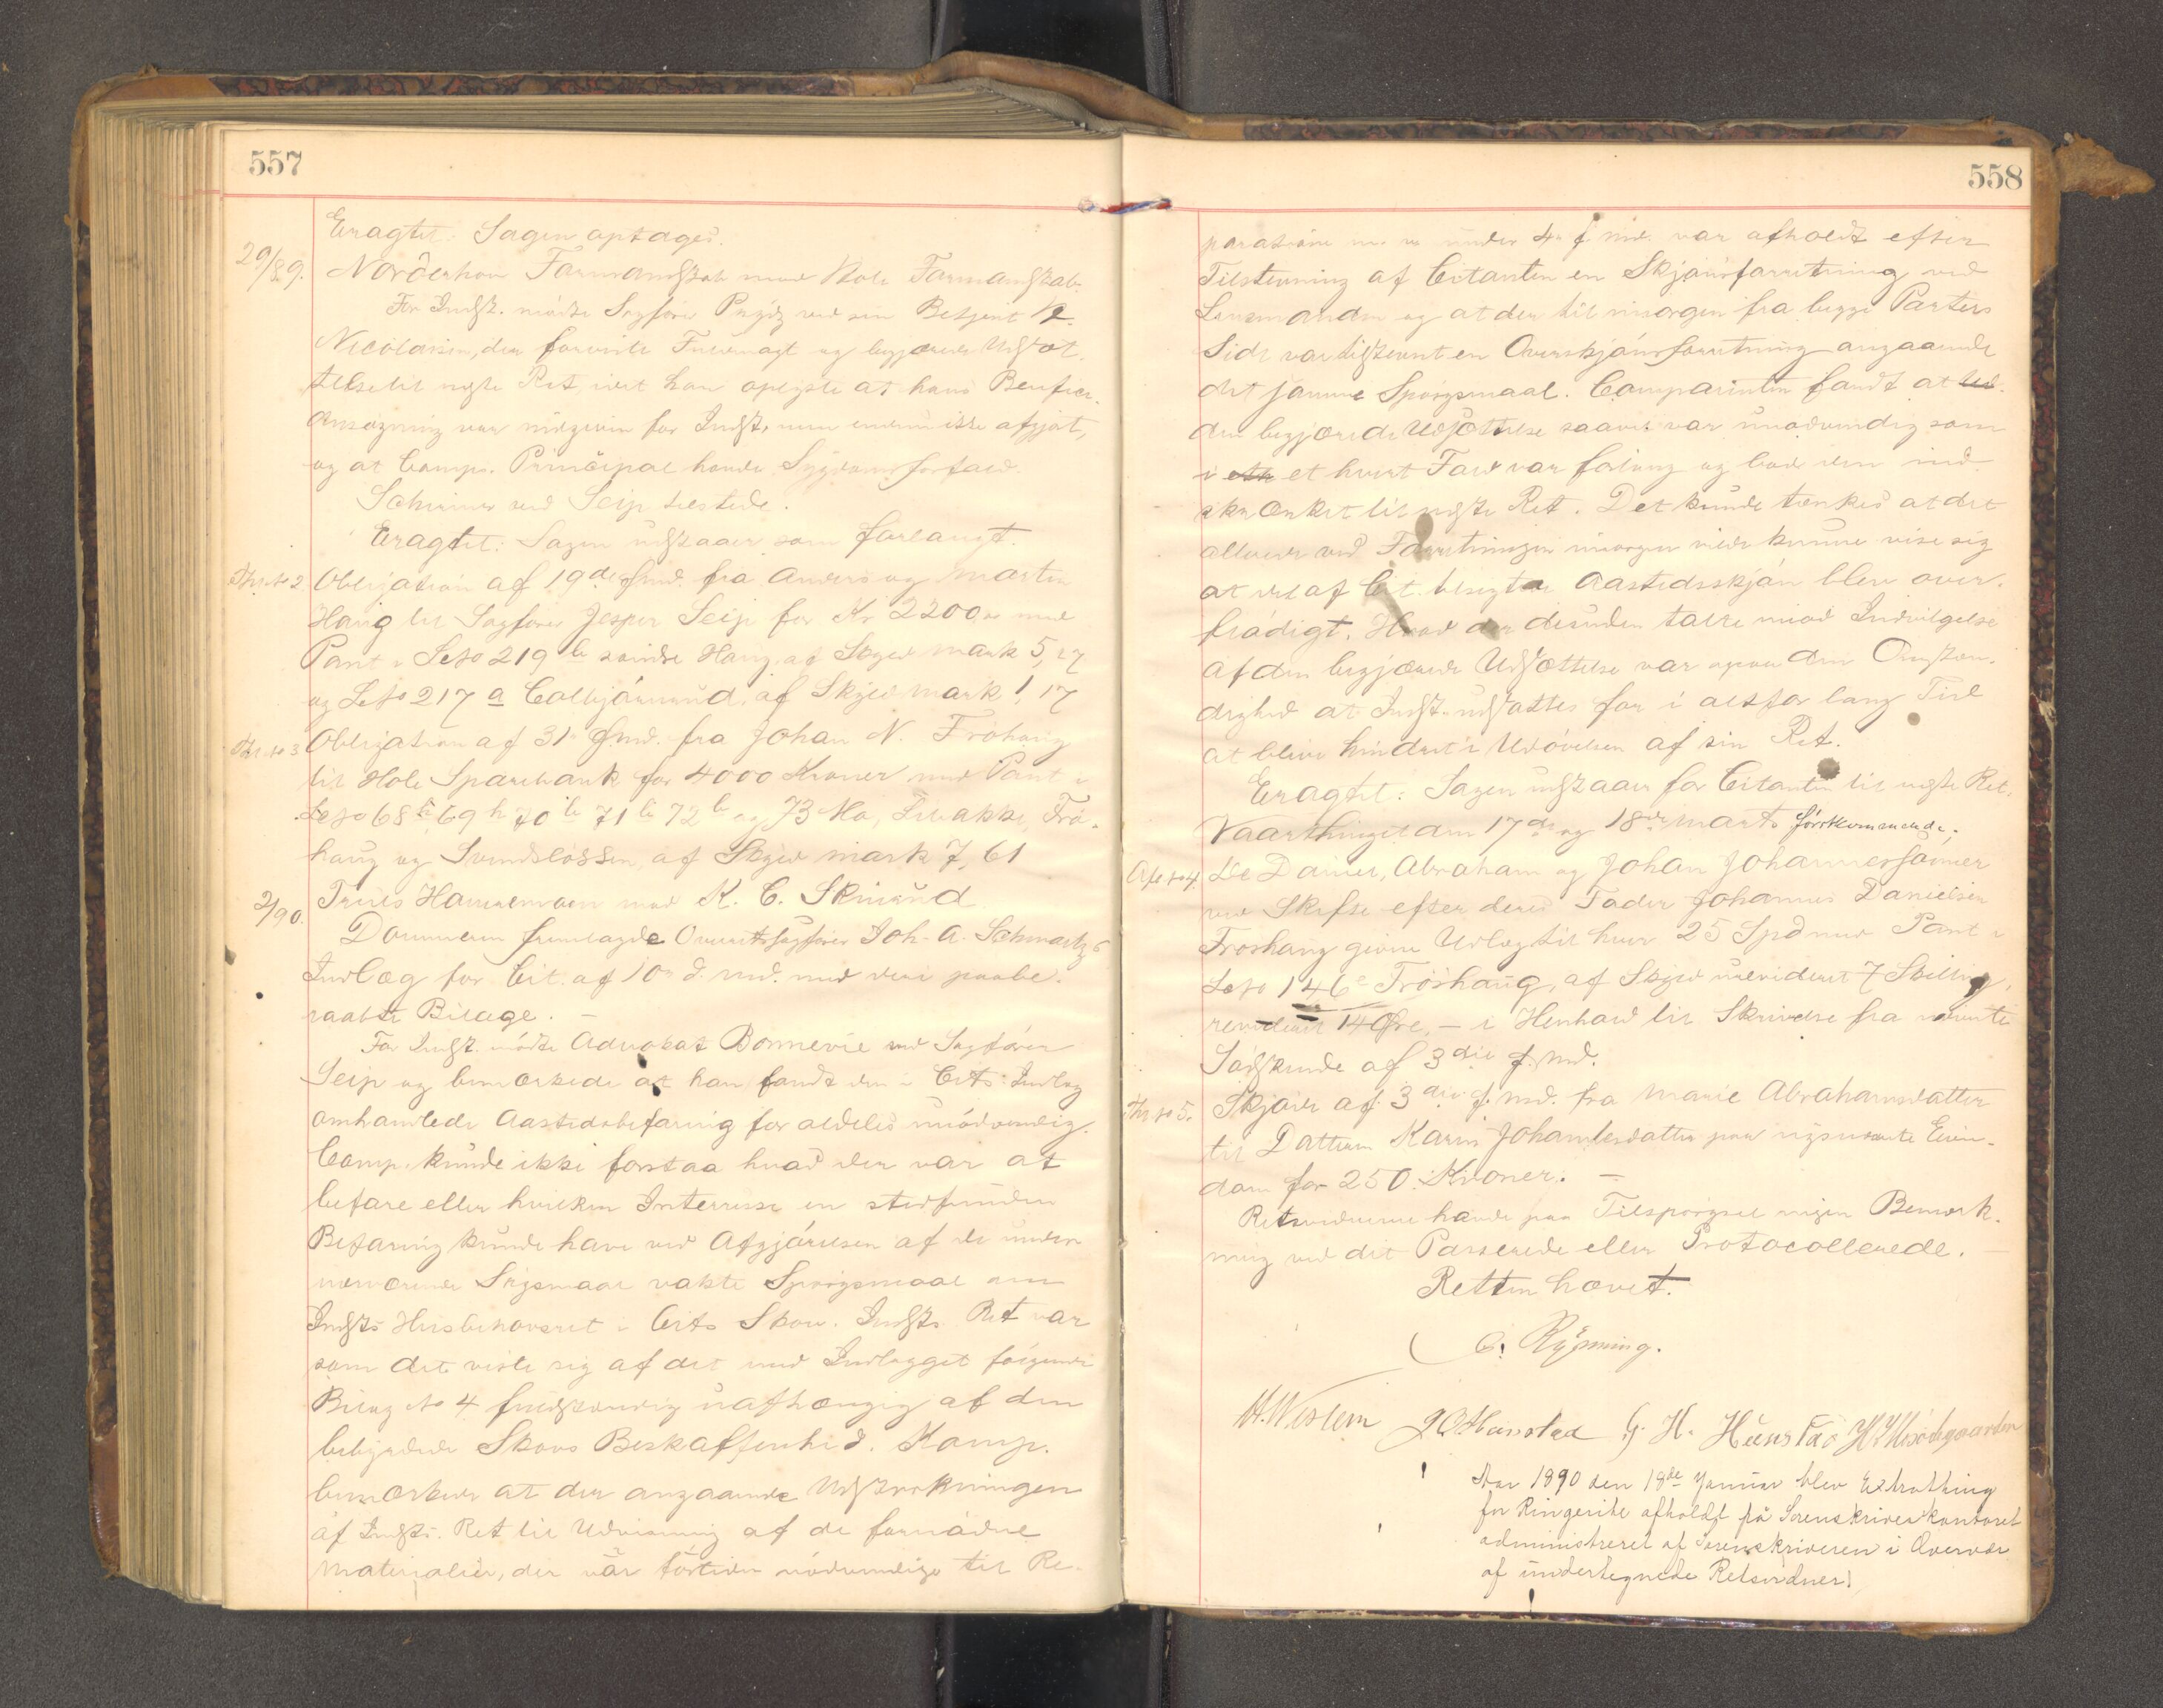 557
Eragtet: Sagen optages.
29/89. Norderhov Formandskab mod Hole Formandskab.
For Indst. mødte Sagfører Prydz ved sin Betjent N.
Nicolaisen, der foreviste Fuldmagt og begjærede Udsæt-
telse til næste Ret, idet han oplyste at hans Benefice-
Ansøgning var indgiven for Indst, men endnu ikke afgjort,
og at Comp. Principal havde Sygdomsforfald.
Schirmer ved Seip tilstede.
Eragtet: Sagen udstaaer som forlangt.
Thr. No 2. Obligation af 19de f. md. fra Anders og Martin
Haug til Sagfører Jesper Seip for Kr 2200,00 med
Pant i Løbo 219 b søndre Haug, af Skyld mark 5,27
og Løbo 217 a Colbjørnrud, af Skyld mark 1,17
Thr. No 3 Obligation af 31 f. md. fra Johan N. Frøhaug
til Hole Sparebank for 4000 Kroner med Pant i
Løbo 68 b 69 b 70 b 71 b 72 b og 73 Mo, Frø-
haug og Svendsløssen af Skyld mark 7,61
2/90. Truls Hammemoen mod K. C. Skinrud
Dommeren fremlagde Overretssagfører Joh. A. Schwartz's
Indlæg for Cit. af 10 d. md. med deri paabe-
raabte Bilage. —
For Indst. mødte Advokat Bonnevie ved Sagfører
Seip og bemærkede at han fandt den i Cits Indlæg
omhandlede Aastedsbefaring for aldeles unødvendig.
Comp. kunde ikke forstaa hvad der var at
befare eller hvilken Interesse en stedfunden
Befaring kunde have ved Afgjørelsen af de under
nærværende Søgsmaal vakte Spørgsmaal om
Indsts Husbehovsret i Cits Skov. Indsts Ret var
som det viste sig af det med Indlægget følgende
Bilag No 4 fuldstændig uafhængig af den
bebyrdede Skovs Beskaffenhed. Komp.
bemærkede at der angaaende Udstrækningen
af Indsts. Ret til Udvisning af de fornødne
Materialier, der var fortiden nødvendige til Re-
558
parationer under 4 f. md. var afholdt efter
Tilstevning af Citanten en Skjønsforretning ved
Lensmanden og at der til imorgen fra begge Parters
Side var tilstevnt en Overskjønsforretning angaaende
det samme Spørgsmaal. Comparenten fandt at
den begjærede Udsættelse saavel var unødvendig som
i et hvert Fald var for lang og bad den ind-
skrænket til næste Ret. Det kunde tænkes at det
allerede ved Forretningen imorgen vilde kunne vise sig
at det af Cit. besigtede Aastedsskjøn blev over-
flødigt. Hvad der desuden talte mod Indvilgelse
af den begjærede Udsættelse var ogsaa den Omstæn-
dighed at Indst. udsattes for i altfor lang Tid
at blive hindret i Udøvelsen af sin Ret.
Eragtet: Sagen udstaaer for Citanten til næste Ret.
Vaarthinget den 17de og 18de Marts førstkommende.
Afl. No 4. De Daniel, Abraham og Johan Johannessønner
ved Skifte efter deres Fader Johannes Danielsen
Frøshaug givne Udlæg til hver 25 Spd med Pant i
Løbo 146 c Frøshaug, af Skyld urevideret 7 Skilling,
revideret 14 Øre. — i Henhold til Skrivelse fra nævnte
Sødskende af 3die f. Md.
Thr. No 5. Skjøde af 3die f. md. fra Marie Abrahamsdatter
til Datteren Karen Johannesdatter paa nysnævnte Eien-
dom for 250 Kroner. —
Retsvidnerne havde paa Tilspørgsel ingen Bemærk-
ning ved det Passerede eller Protocollerede. —
Retten hævet.
C. Rynning.
H. Western G. H. Hunstad
Aar 1890 den 18de Januar blev Extrathing
for Ringerike afholdt på Sorenskriverkontoret
administreret af Sorenskriveren i Overvær
af undertegnede Retsvidner!